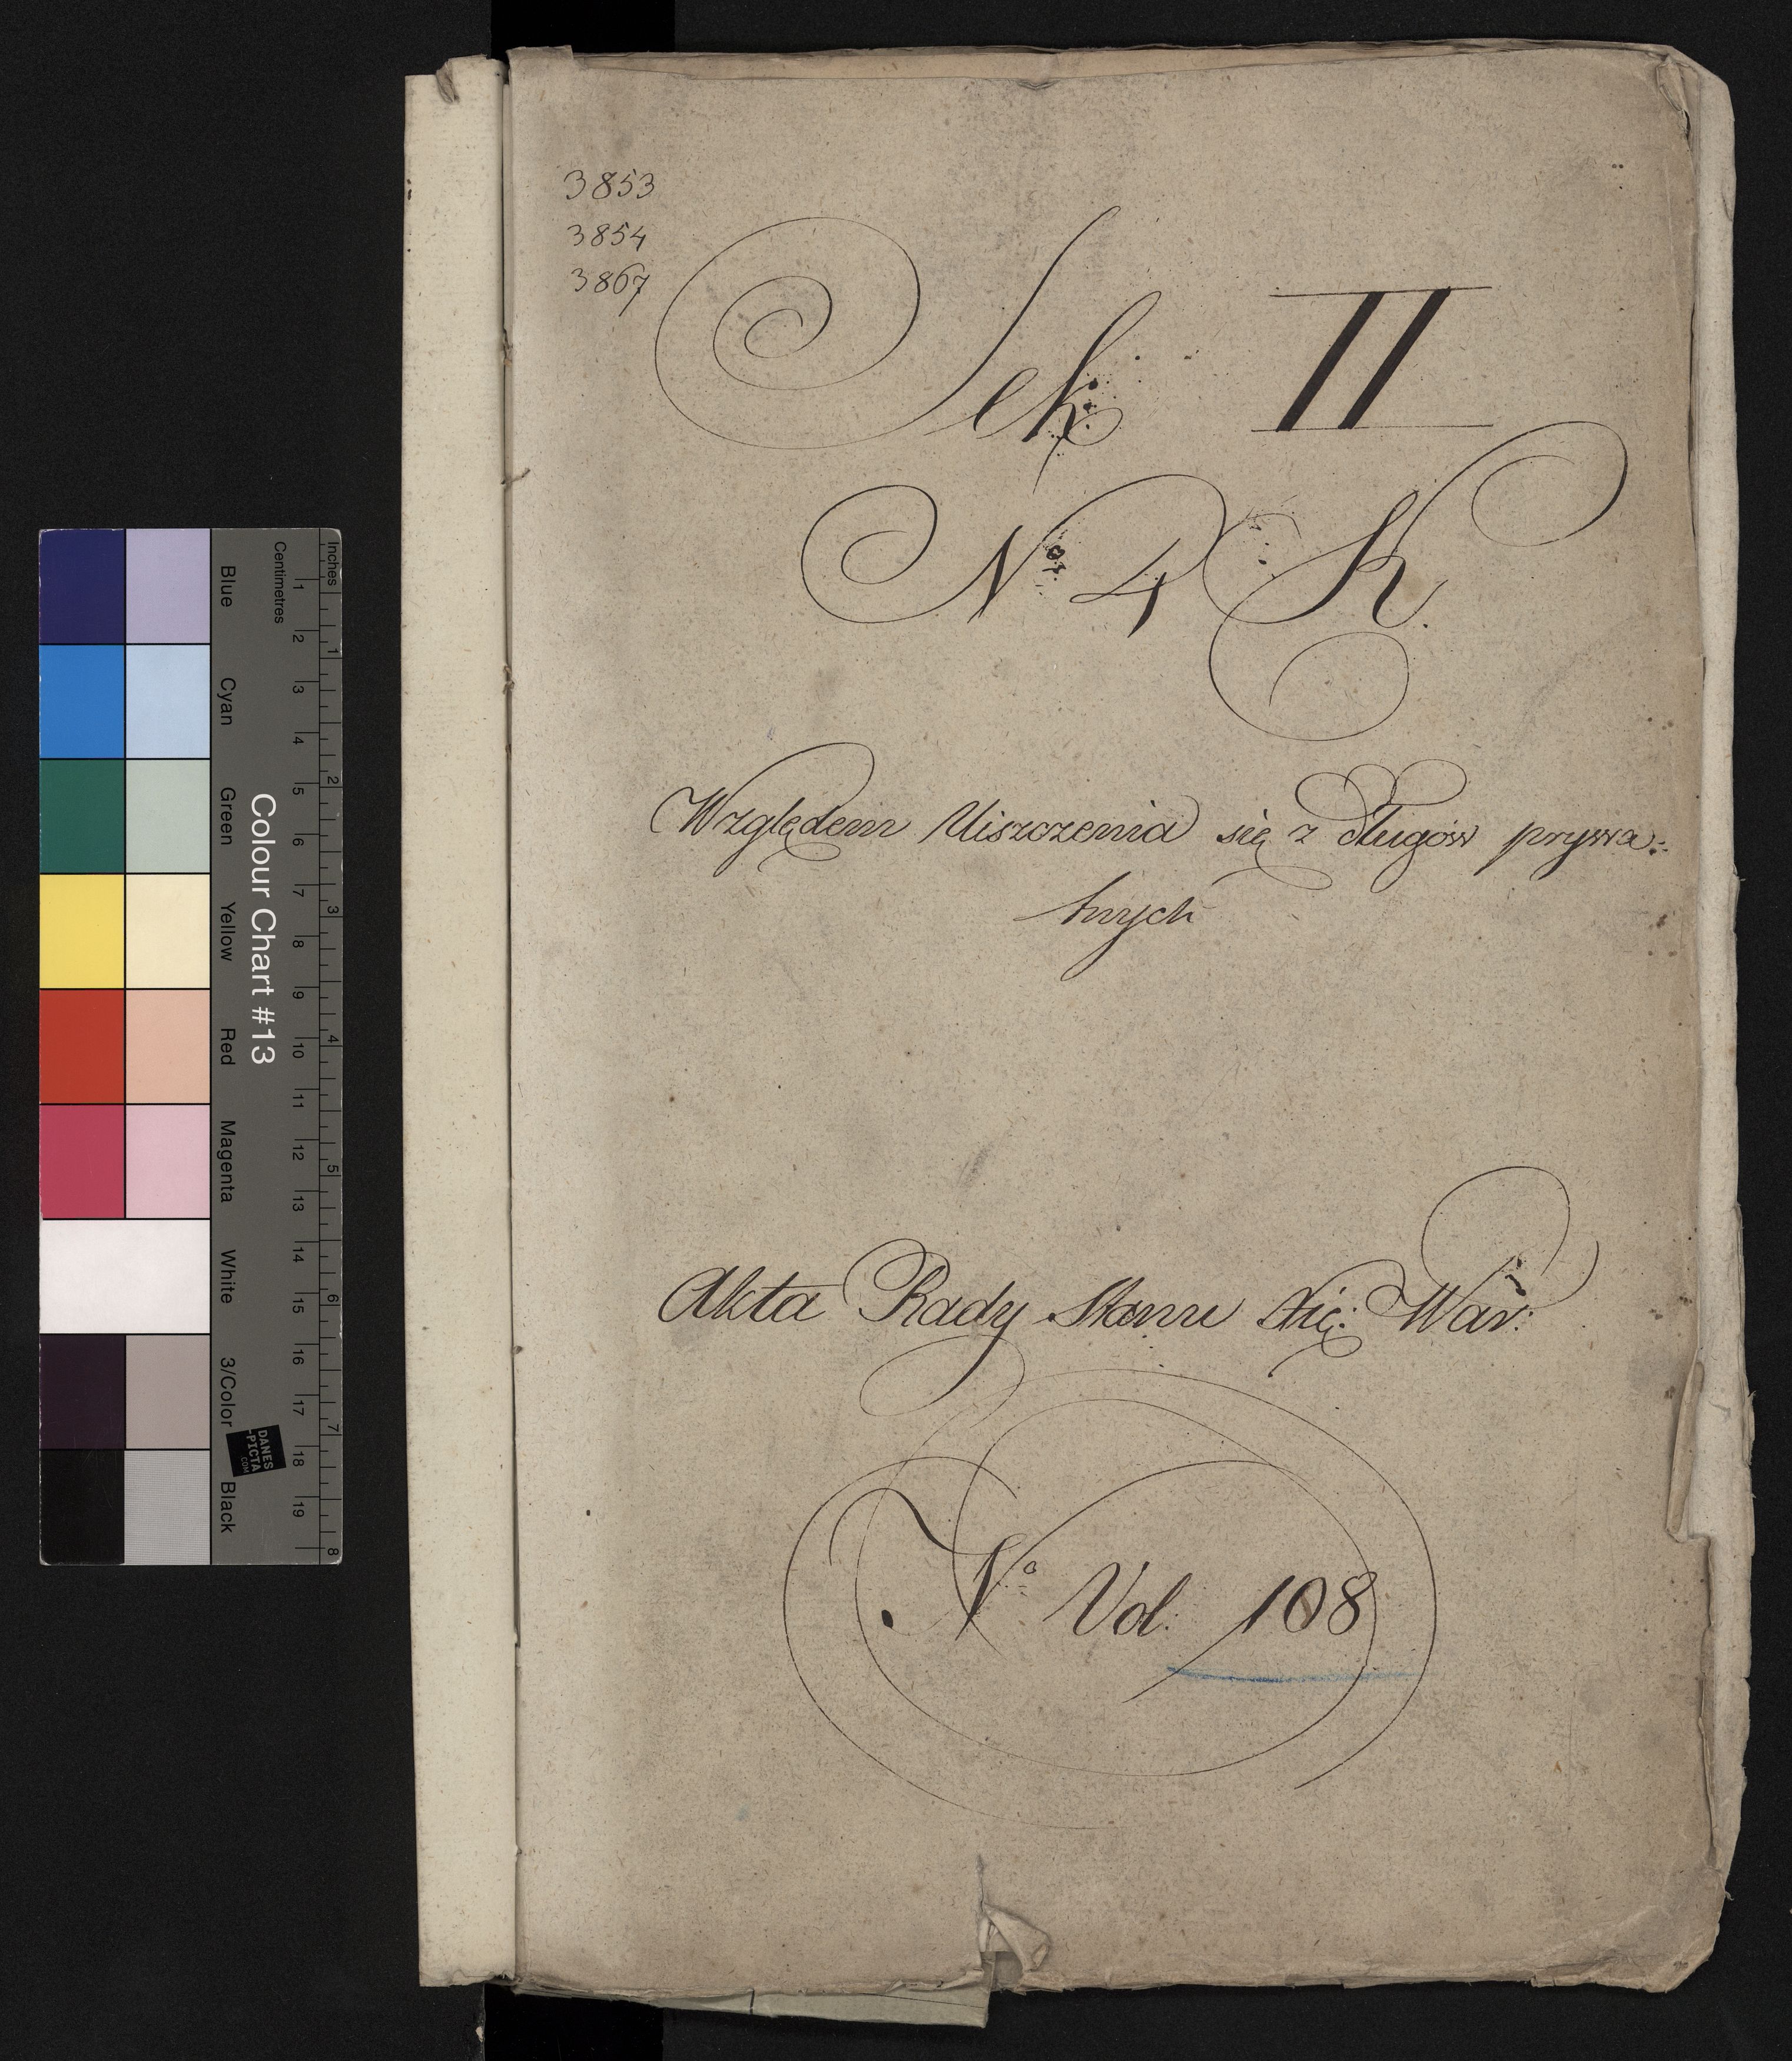 3853
3854
3867
Sek: II
No 4 K.
Względem Uiszczenia się z długów prywa:
tnych
Akta Rady Stanu Xię: War:
No Vol: 108
Colour Chart #13
Blue Cyan Green Yellow Red Magenta White 3/Color Black
Inches 1 2 3 4 5 6 7 8
Centimetres 1 2 3 4 5 6 7 8 9 10 11 12 13 14 15 16 17 18 19
DANES
-PICTA
.COM